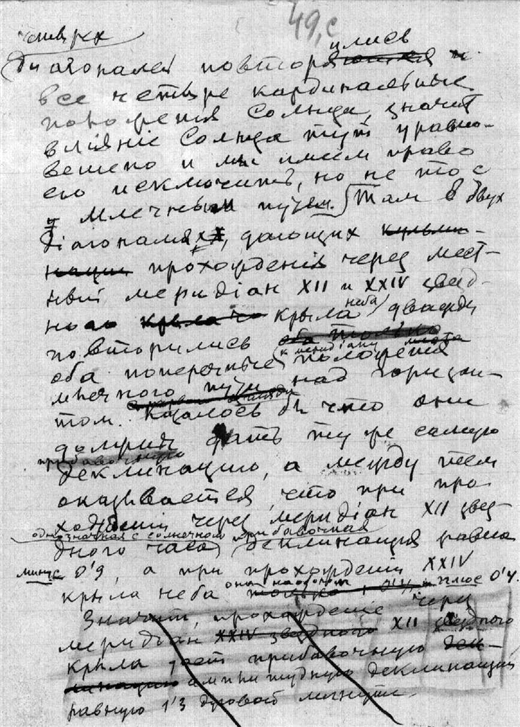 49, с
четырех
диагоналей повторялись
все четыре кардинальные
положения Солнца, значит
влияніе Солнца тут уравно-
вешено и мы имеем право
его исключить, но не то с
Млечным путем. Там в двух
діагоналях, дающих кульми-
нации прохожденія через мест-
ный меридіан XII и XXIV звезд-
ного крыла неба дважды
повторились
оба поперечные к меридіану положения
млечного пути над горизон-
том. Казалось бы что они
должны дать ту же самую
прибавочную
деклинацию, а между тем
оказывается, что при про-
хождении через меридіан XII звезд-
однозначная с солнечной прибавочная
дного часа деклинация равна
минус 0'9, а при прохождении XXIV
крыла неба она наоборот плюс 0'4.
Значит, прохождение через
меридіан XXIV звездного XII звездного
крыла дает прибавочную дек-
линацию амплитудную деклинацию
равную 1'3 дуговой минуты.